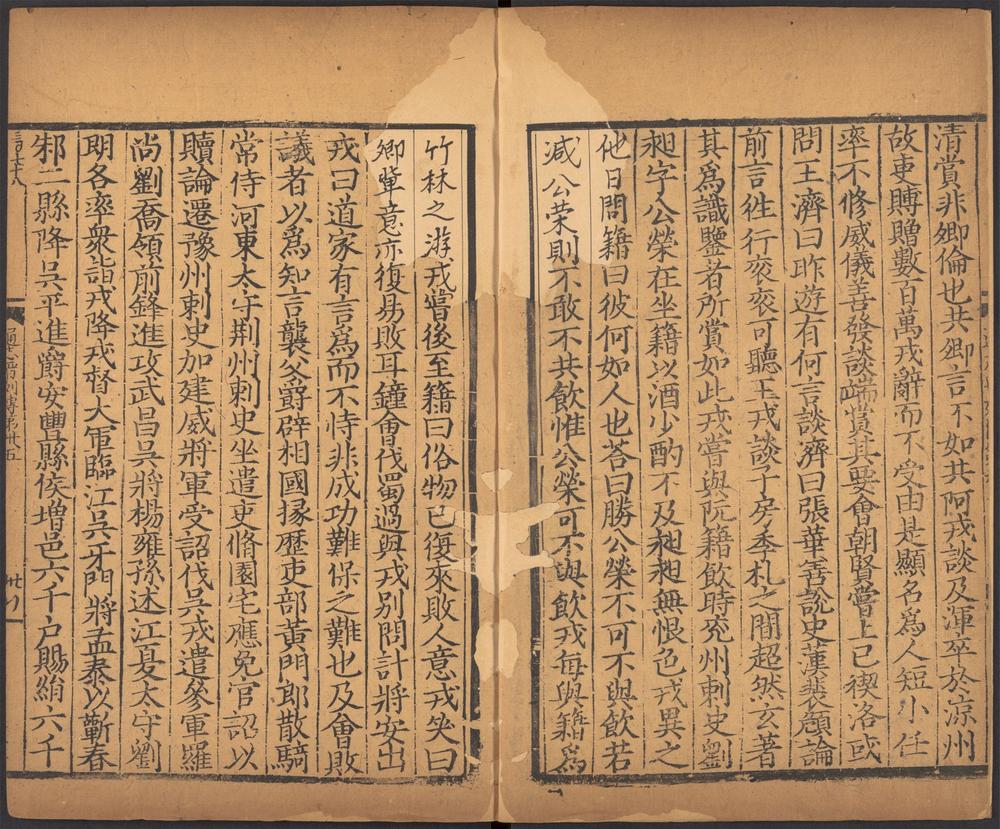 清賞非卿倫也共卿言不如共阿戎談及渾卒於涼州
故吏賻贈數百萬戎辭而不受由是顯名為人短小任
率不修威儀善發談端賞其要會朝賢嘗上巳禊洛或
問王濟曰昨遊有何言談濟曰張華善說史漢裴頠論
前言往行袞袞可聽王戎談子房季札之間超然玄著
其為識鑒者所賞如此戎嘗與阮籍飲時兖州刺史劉
昶字公榮在坐籍以酒少酌不及昶昶無恨色戎異之
他日問籍曰彼何如人也荅曰勝公榮不可不與飲若
減公荣則不敢不共飲惟公榮可不與飲戎每與籍為
竹林之游戎嘗後至籍曰俗物已復來敗人意戎笑曰
卿輩意亦復易敗耳鐘會伐蜀過與戎別問計將安出
戎曰道家有言為而不恃非成功難保之難也及會敗
議者以為知言襲父爵辟相國掾歷吏部黃門郎散騎
常侍河東太守荆州刺史坐遣吏脩園宅應免官詔以
贖論遷豫州刺史加建威將軍受詔伐吳戎遣參軍羅
尚劉喬領前鋒進攻武昌吳將楊雍孫述江夏太守劉
朗各率衆詣戎降戎督大軍臨江吳牙門將孟泰以蘄春
邾二縣降吳平進爵安豐縣侯增邑六千户賜絹六千